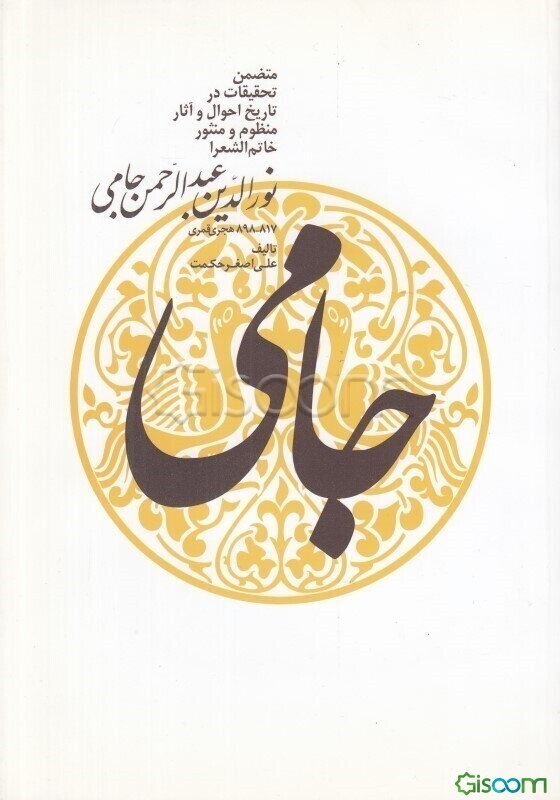 متضمن
تحقیقات در
تاریخ احوال و آثار
منظوم و منثور
خاتم الشعرا
نورالدّین عبدالرّحمن جامی
۸۱۷ـ۸۹۸ هجری قمری
تالیف
علی اصغر حکمت
جامی
Gisoom
Gisoom